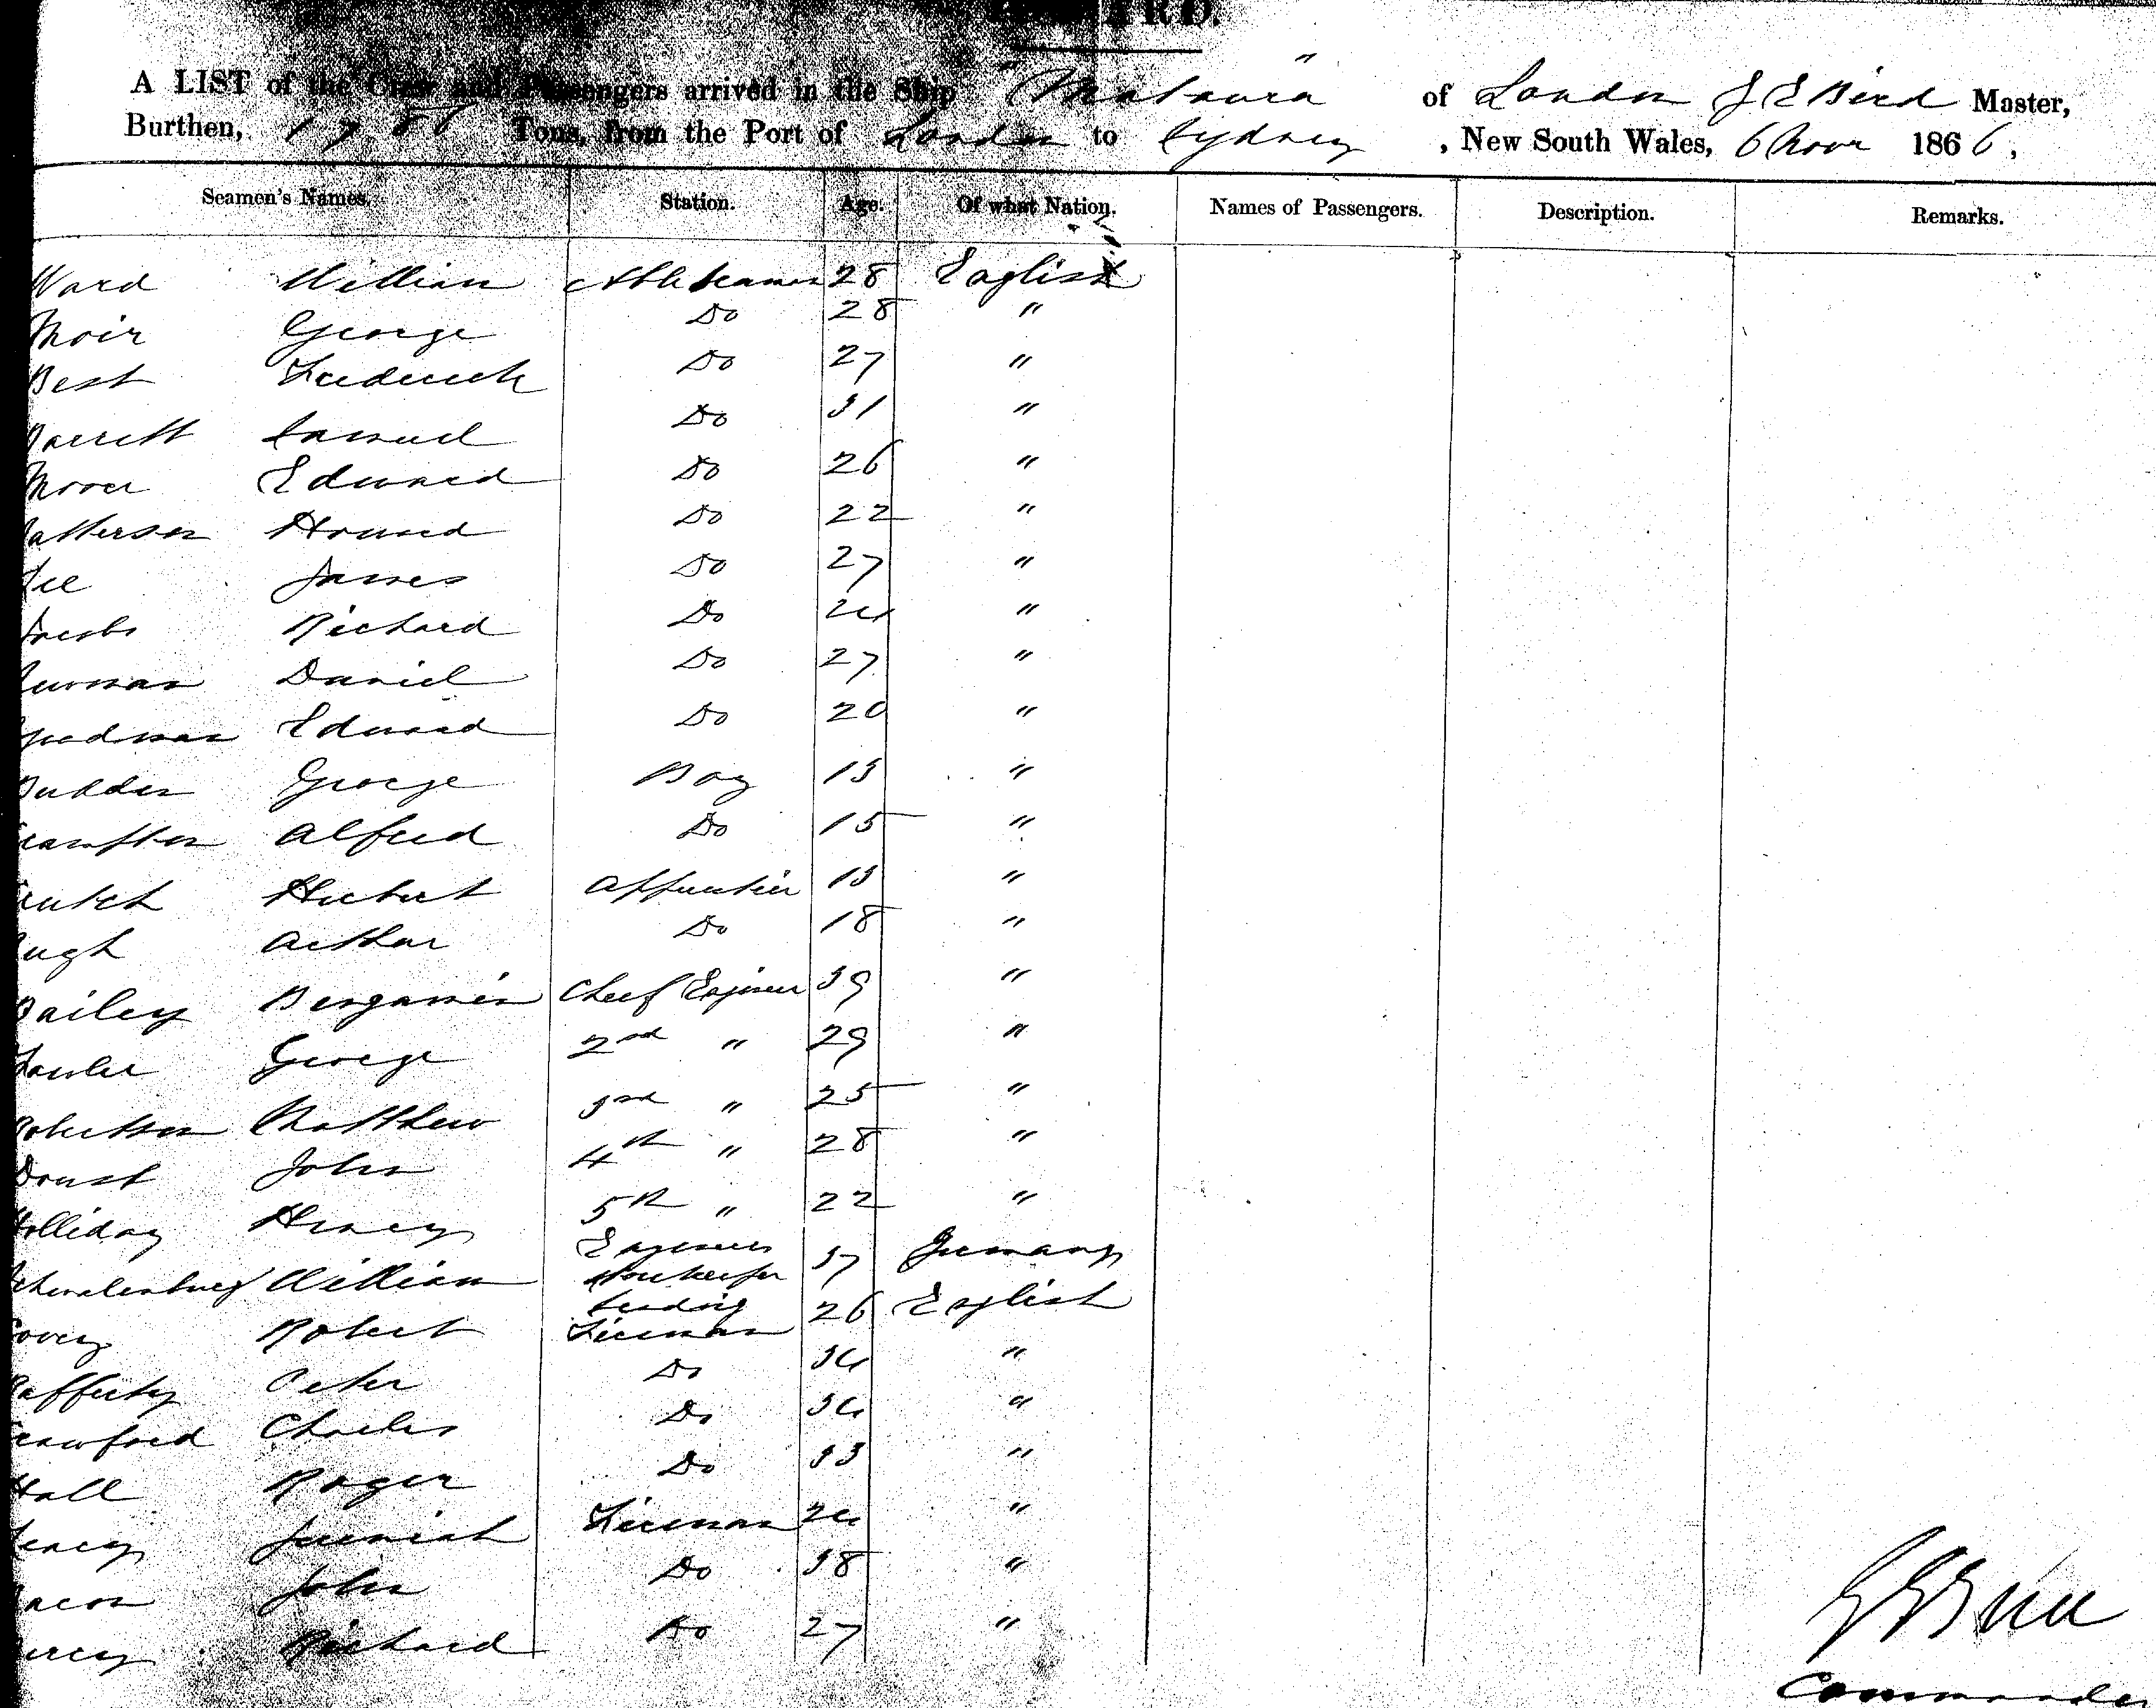 A LIST of the Crew and Passengers arrived in the Ship "Mataura" of London J E Bird Master,
Burthen, 1786 Tons, from the Port of London to Sydney, New South Wales, 6 Novr 1866,
Seamen's Names. Station. Age. Of what Nation. Names of Passengers. Description. Remarks.
Ward William Able Seaman 28 English
Moir George Do 28 "
Best Frederick Do 27 "
Barrett Samuel Do 31 "
Moore Edward Do 26 "
Patterson Do 22 "
Lee James Do 27 "
Jacobs Richard Do 24 "
Newman Daniel Do 27 "
Goodman Edward Do 20 "
George Boy 13 "
Crampton Alfred Do 15 "
Herbert Apprentice 13 "
Pugh Arthur Do 18 "
Bailey Benjamin Chief Engineer 39 "
Fowler George 2nd " 29 "
Robertson Matthew 3rd " 25 "
Doust John 4th " 28 "
Holliday Henry 5th " 22 "
Schwalenburg William Engineers Storekeeper 37 Germany
Robert Leading Fireman 26 English
Rafferty Peter Do 34 "
Crawford Charles Do 34 "
Hall Roger Do 33 "
Jeremiah Fireman 24 "
Bacon John Do 38 "
Percy Richard Do 27 "
J E Bird
Commander